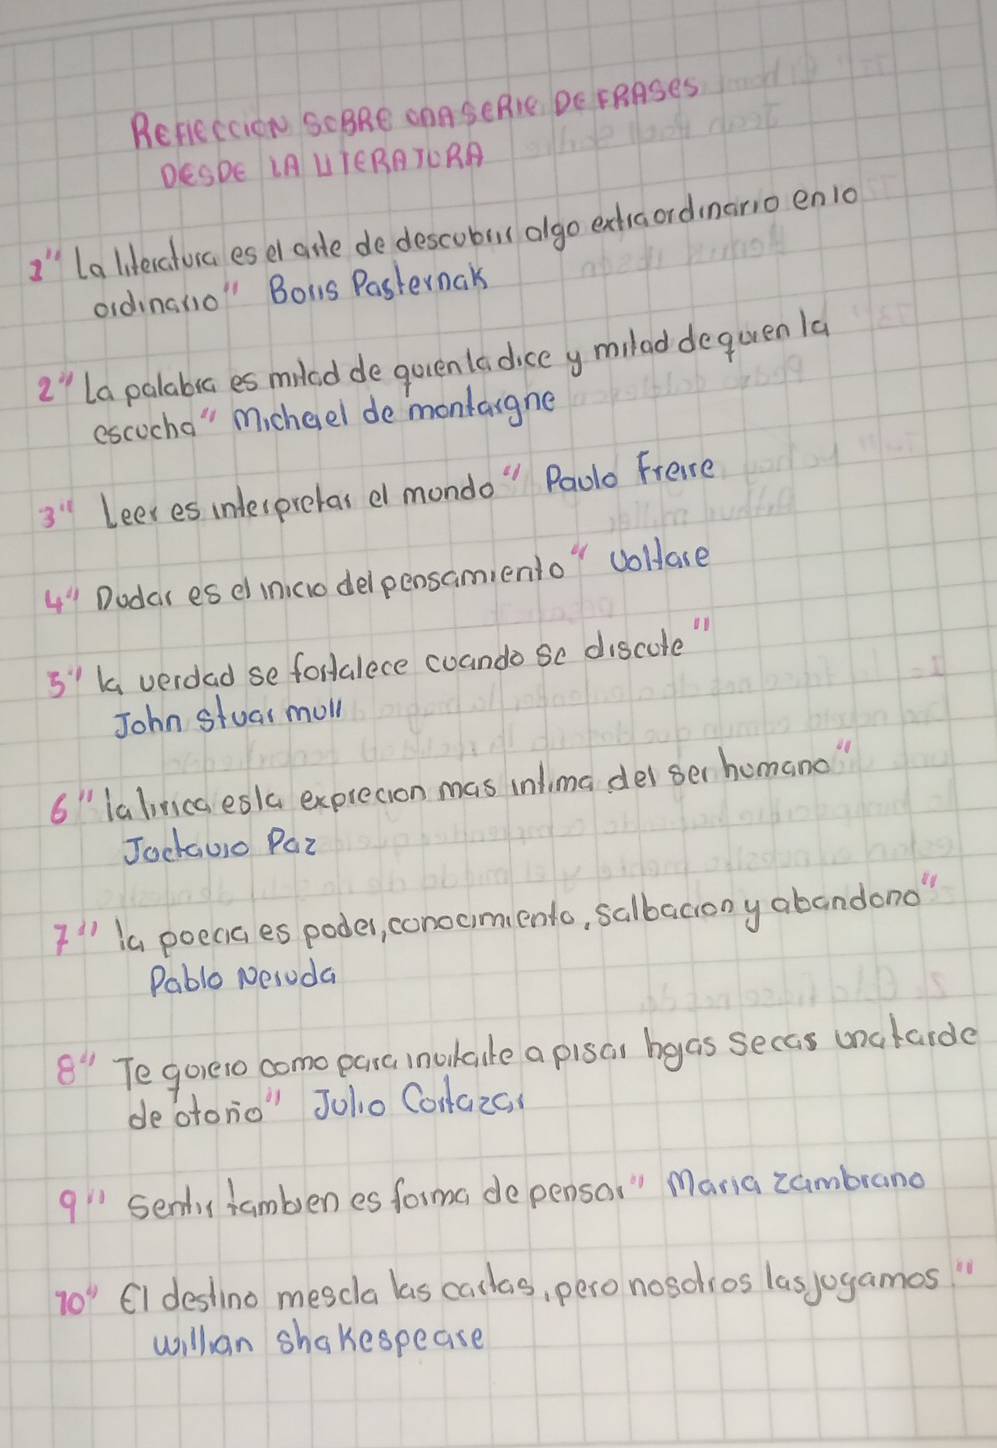 REFLECCION SOBRE UNA SERIE DE FRASES
DESDE LA LITERATURA
1" La literatura es el arte de descubrir algo extraordinario en lo
ordinario" Boris Pasternak
2" La palabra es mitad de quien la dice y mitad de quien la
escucha" Michael de montaigne
3" Leer es interpretar el mundo" Paulo Freire
4" Dudar es el inicio del pensamiento" Voltare
5" La verdad se fortalece cuando se discute"
John stuar mull
6" la lirica es la exprecion mas intima del ser humano"
Joctavio Paz
7" la poecia es poder, conocimiento, salbacion y abandono"
Pablo Neruda
8" Te quiero como para invitarte a pisar hojas secas una tarde
de otoño" Julio Cortazar
9" Sentir tambien es forma de pensar" Maria zambrano
10" El destino mescla las cartas, pero nosotros las jugamos"
willian shakespeare